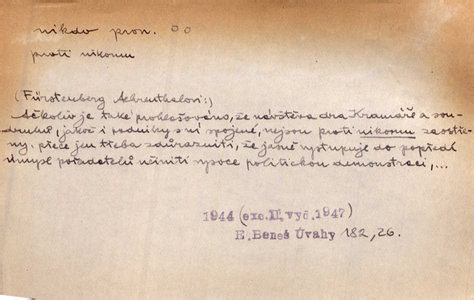 nikdo pron. oo
proti nikomu
(Fürstenberg Aehrenthalovi:)
Ačkoliv je také prohlašováno, že návštěva dra Kramáře a sou-
druhů, jakož i podniky s ní spojené, nejsou proti nikomu zaostře-
ny, přece jen třeba zdůrazniti, že jasně vystupuje do popředí
úmysl pořadatelů učiniti vysoce politickou demonstraci,...
1944 (exc.II.vyd.1947)
E.Beneš Úvahy 182,26.